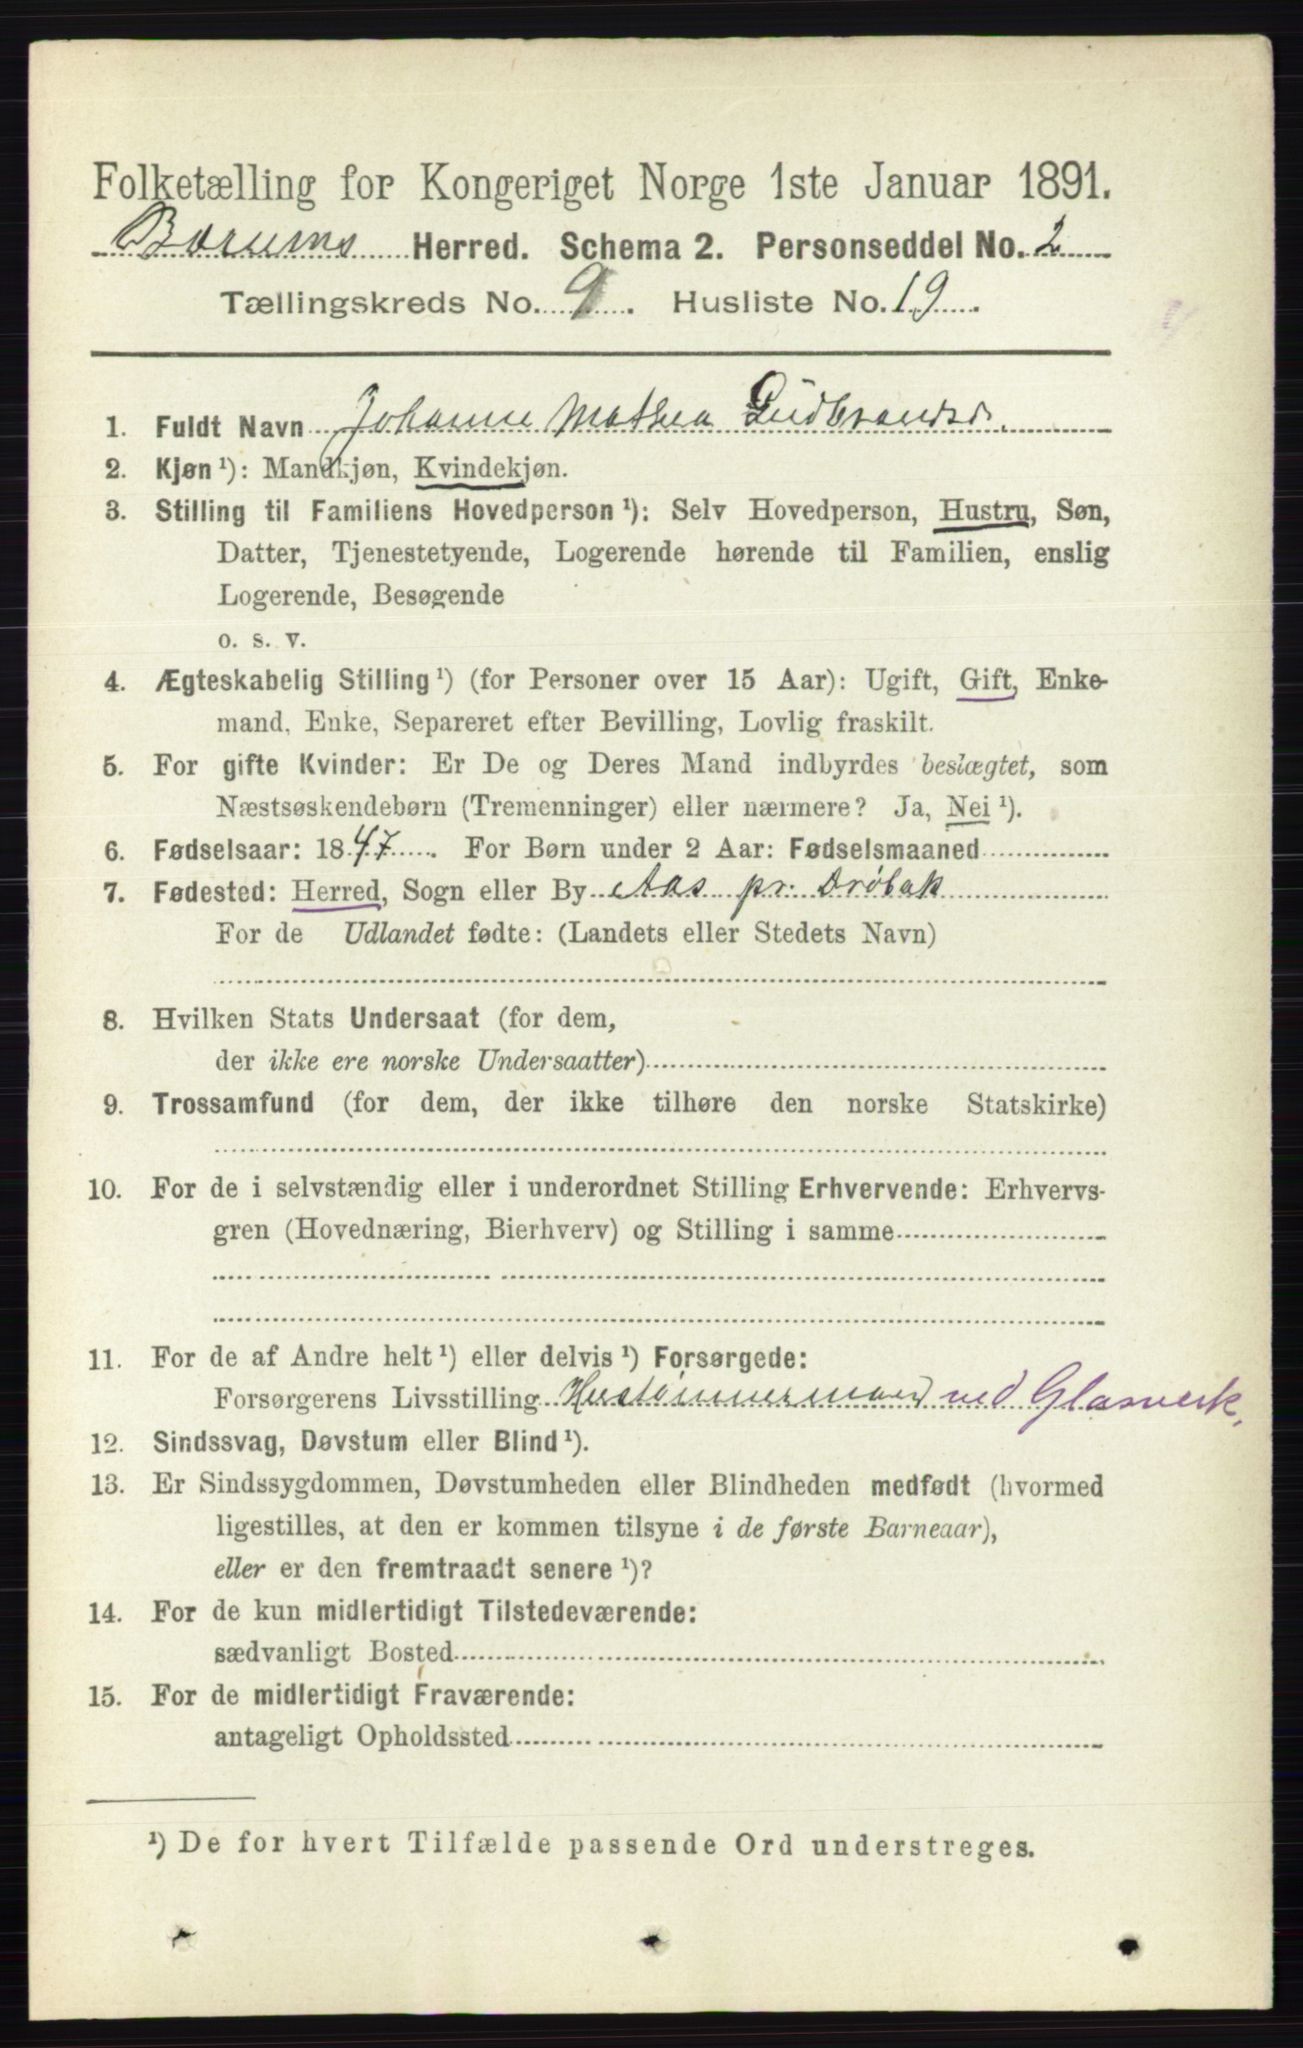 Folketælling for Kongeriget Norge 1ste Januar 1891.
Bærums Herred. Schema 2. Personseddel No. 2
Tællingskreds No. 9. Husliste No. 19.
1. Fuldt Navn Johanne Mathea Gudbrandsd.
2. Kjøn ¹): Mandkjøn, Kvindekjøn.
3. Stilling til Familiens Hovedperson ¹): Selv Hovedperson, Hustru, Søn,
Datter, Tjenestetyende, Logerende hørende til Familien, enslig
Logerende, Besøgende
o. s. v.
4. Ægteskabelig Stilling ¹) (for Personer over 15 Aar): Ugift, Gift, Enke-
mand, Enke, Separeret efter Bevilling, Lovlig fraskilt.
5. For gifte Kvinder: Er De og Deres Mand indbyrdes beslægtet, som
Næstsøskendebørn (Tremenninger) eller nærmere? Ja, Nei ¹).
6. Fødselsaar: 1847. For Børn under 2 Aar: Fødselsmaaned
7. Fødested: Herred, Sogn eller By Aas pr. Drøbak
For de Udlandet fødte: (Landets eller Stedets Navn)
8. Hvilken Stats Undersaat (for dem,
der ikke ere norske Undersaatter)
9. Trossamfund (for dem, der ikke tilhøre den norske Statskirke)
10. For de i selvstændig eller i underordnet Stilling Erhvervende: Erhvervs-
gren (Hovednæring, Bierhverv) og Stilling i samme
11. For de af Andre helt ¹) eller delvis ¹) Forsørgede:
Forsørgerens Livsstilling Hustømmermand ved Glasverk.
12. Sindssvag, Døvstum eller Blind ¹).
13. Er Sindssygdommen, Døvstumheden eller Blindheden medfødt (hvormed
ligestilles, at den er kommen tilsyne i de første Barneaar),
eller er den fremtraadt senere ¹)?
14. For de kun midlertidigt Tilstedeværende:
sædvanligt Bosted
15. For de midlertidigt Fraværende:
antageligt Opholdssted
¹) De for hvert Tilfælde passende Ord understreges.